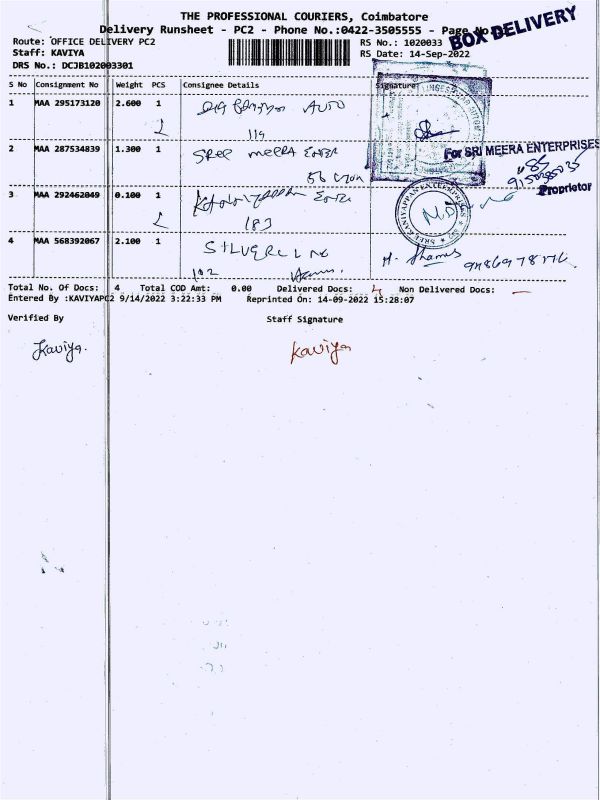 THE PROFESSIONAL COURIERS, Coimbatore
Delivery Runsheet - PC2 - Phone No.:0422-3505555 - Page No
BOX DELIVERY
Route: OFFICE DELIVERY PC2
RS No.: 1020033
Staff: KAVIYA
RS Date: 14-Sep-2022
DRS No.: DCJB102003301
S No Consignment No Weight PCS Consignee Details Signature
1 MAA 295173120 2.600 1 AUTO
119
2 MAA 287534839 1.300 1 SREE MEERA ENTER
For SRI MEERA ENTERPRISES
Proprietor
3 MAA 292462049 0.100 1
SREE KANIYAPPAN ENTERPRISES
183
4 MAA 568392067 2.100 1 SILVERLINE
102
Total No. Of Docs: 4 Total COD Amt: 0.00 Delivered Docs: 4 Non Delivered Docs: —
Entered By :KAVIYAPC2 9/14/2022 3:22:33 PM Reprinted On: 14-09-2022 15:28:07
Verified By Staff Signature
Kaviya. Kaviya